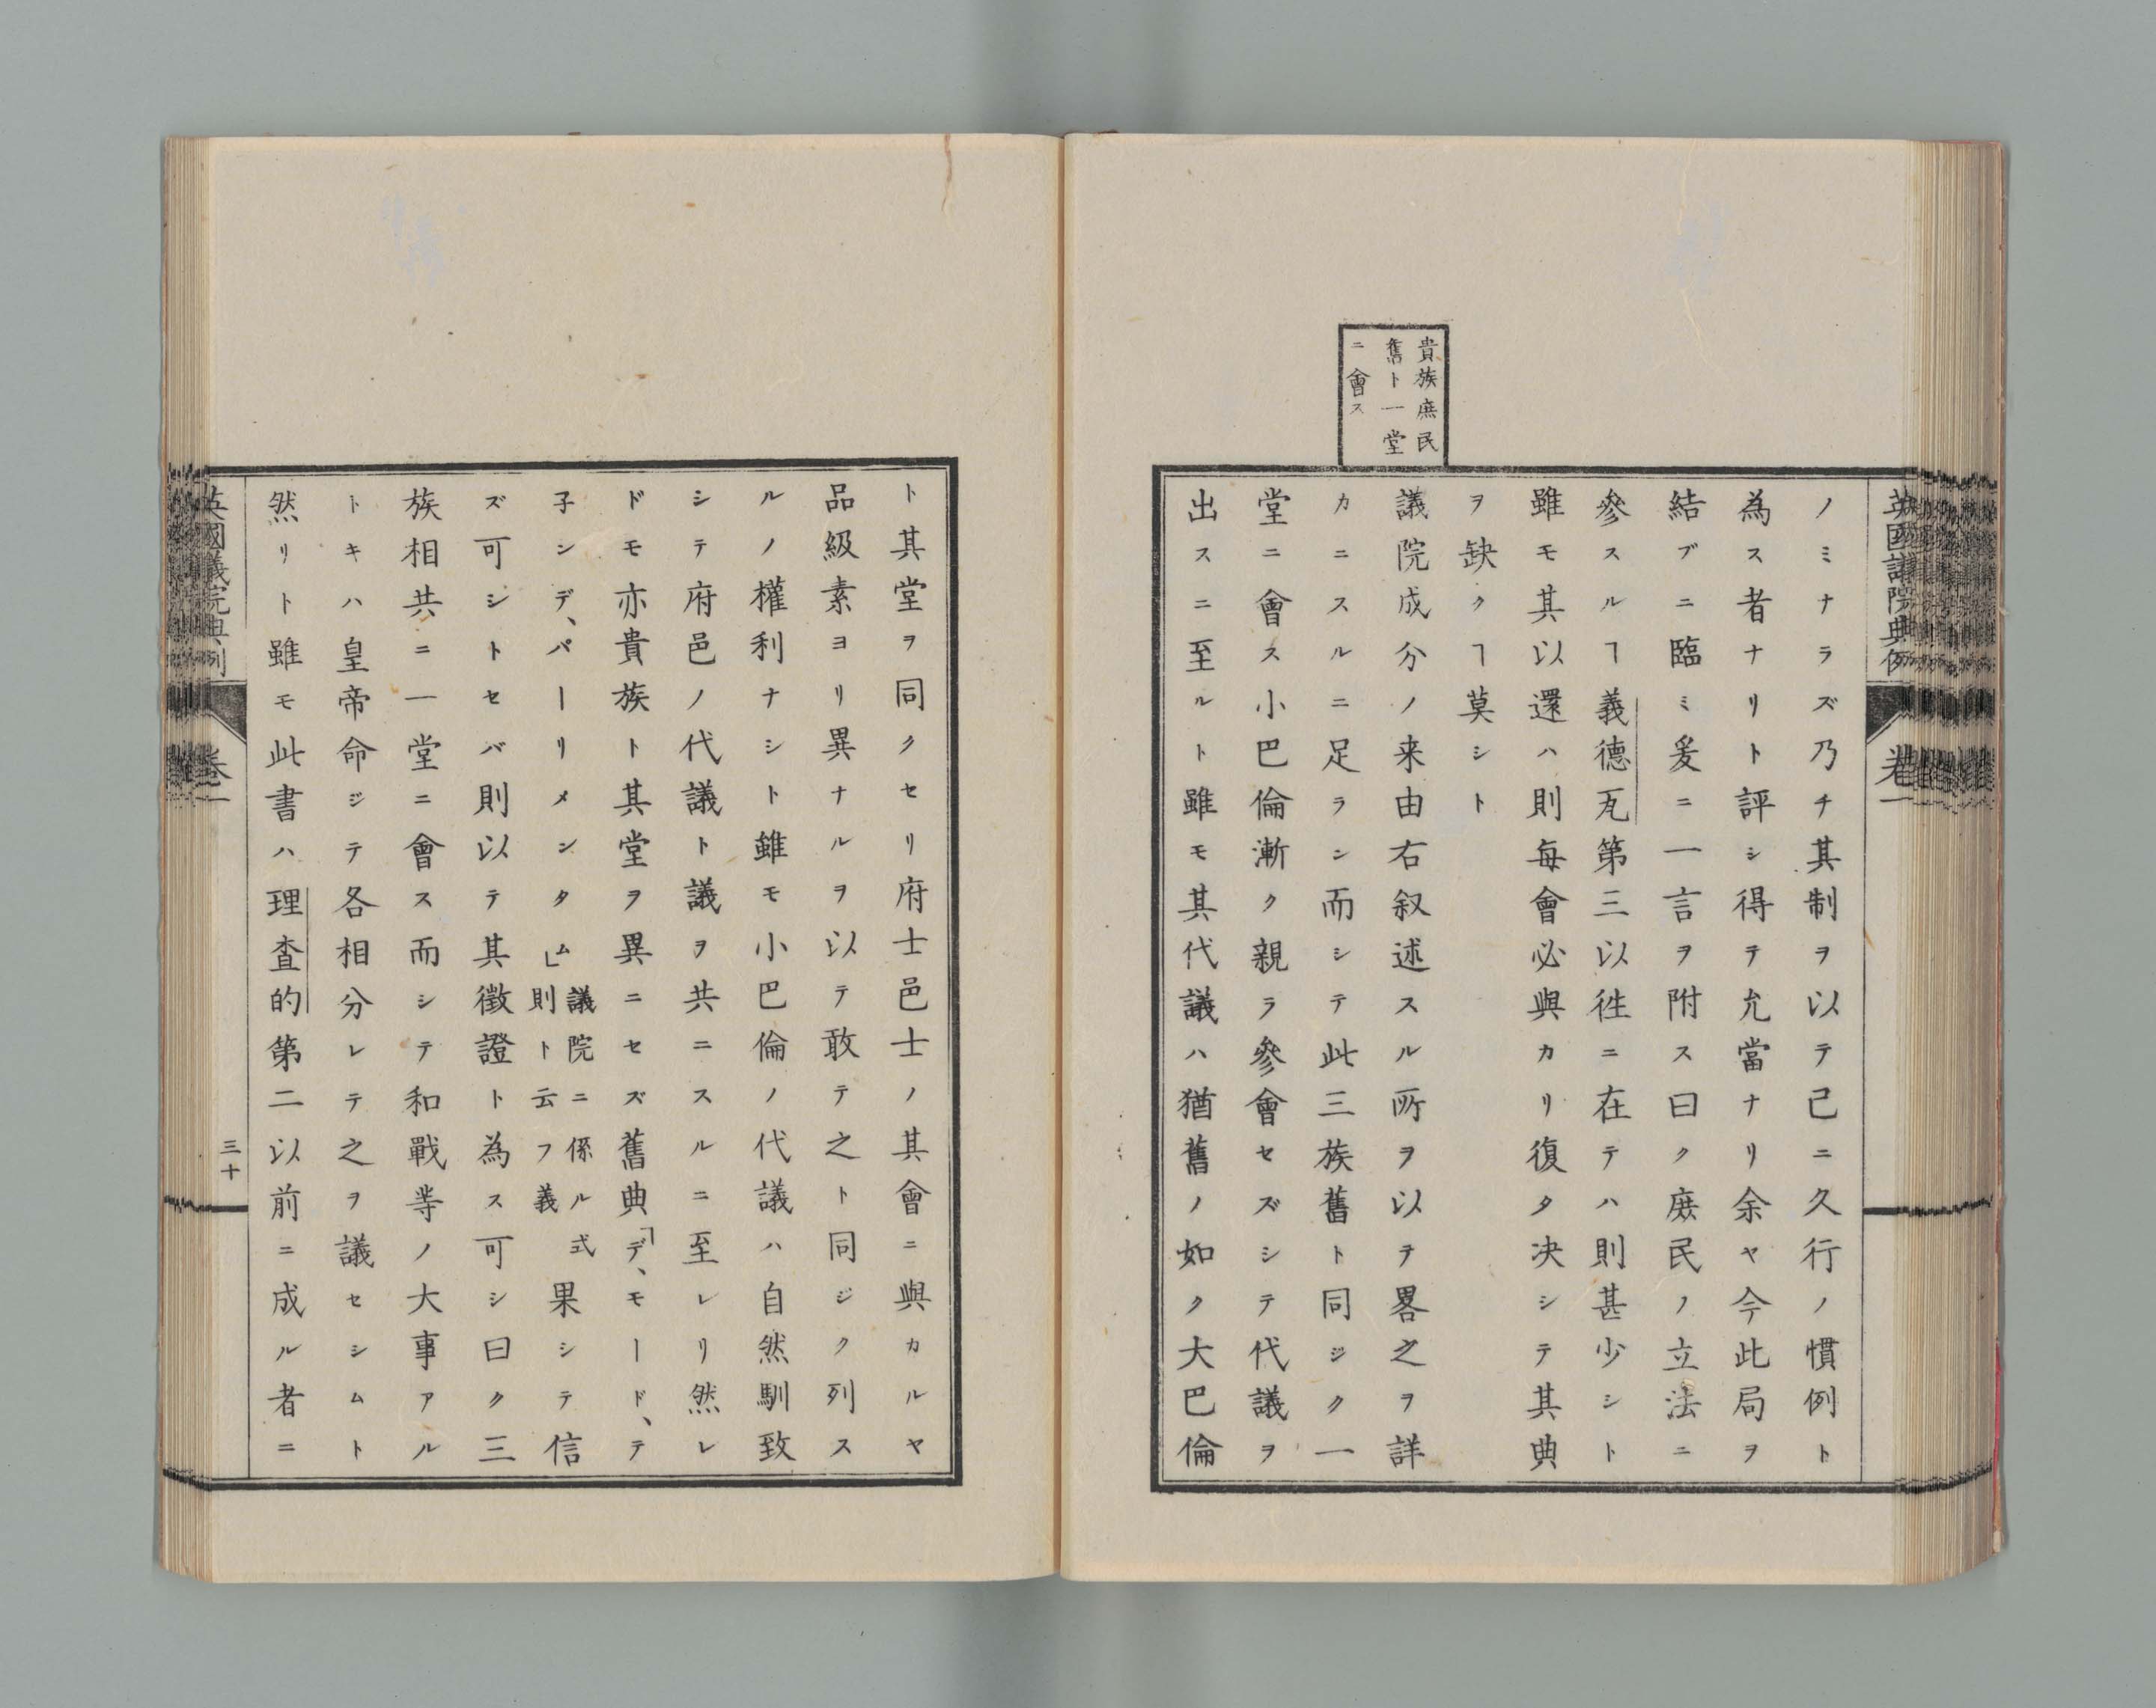 英國議院典例
卷一
ノミナラズ乃チ其制ヲ以テ已ニ久行ノ慣例ト
為ス者ナリト評シ得テ允當ナリ余ヤ今此局ヲ
結ブニ臨ミ爰ニ一言ヲ附ス曰ク庻民ノ立法ニ
參スルヿ義德瓦第三以徃ニ在テハ則甚少シト
雖モ其以還ハ則每會必與カリ復タ决シテ其典
ヲ缺クヿ莫シト
貴族庶民
舊ト一堂
ニ會ス
議院成分ノ来由右叙述スル所ヲ以テ畧之ヲ詳
カニスルニ足ラン而シテ此三族舊ト同ジク一
堂ニ會ス小巴倫漸ク親ラ參會セズシテ代議ヲ
出スニ至ルト雖モ其代議ハ猶舊ノ如ク大巴倫
ト其堂ヲ同クセリ府士邑士ノ其會ニ與カルヤ
品級素ヨリ異ナルヲ以テ敢テ之ト同ジク列ス
ルノ權利ナシト雖モ小巴倫ノ代議ハ自然馴致
シテ府邑ノ代議ト議ヲ共ニスルニ至レリ然レ
ドモ亦貴族ト其堂ヲ異ニセズ舊典「デ、モード、テ
子ンデ、パーリメンタム」議院ニ係ル式
則ト云フ義果シテ信
ズ可シトセバ則以テ其徵證ト為ス可シ曰ク三
族相共ニ一堂ニ會ス而シテ和戰等ノ大事アル
トキハ皇帝命ジテ各相分レテ之ヲ議セシムト
然リト雖モ此書ハ理査的第二以前ニ成ル者ニ
英國議院典例
卷一
三十